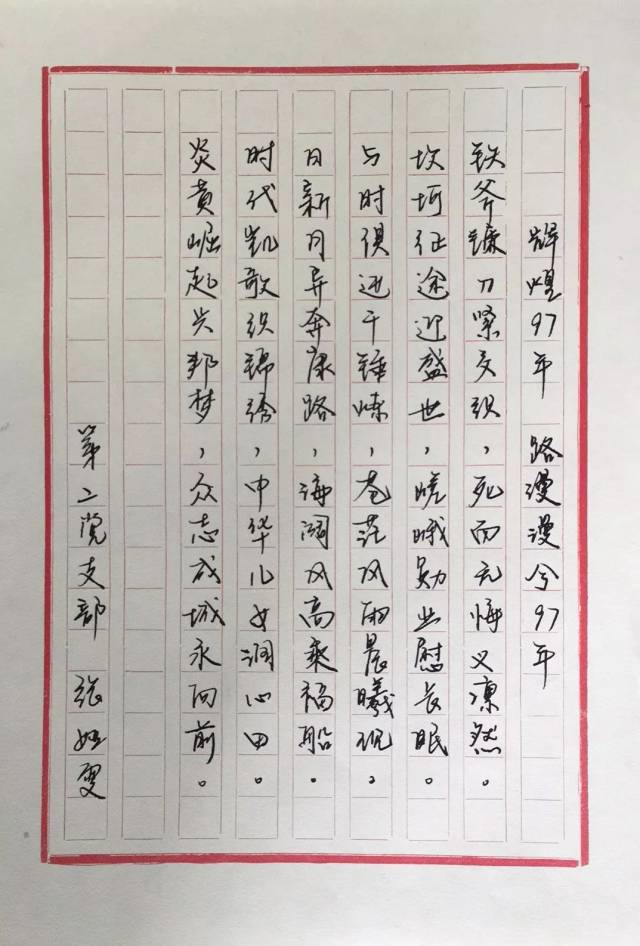 辉煌97年 路漫漫兮97年
铁斧镰刀紧交织，死而无悔义凛然。
坎坷征途迎盛世，嵯峨勋业慰长眠。
与时俱进千锤炼，苍茫风雨晨曦现。
日新月异奔康路，海阔风高乘福船。
时代凯歌织锦绣，中华儿女润心田。
炎黄崛起兴邦梦，众志成城永向前。
第二党支部 张